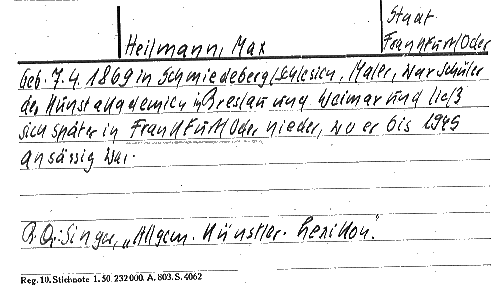 Staat
Heilmann, Max Frankfurt/Oder
Geb. 7.4.1869 in Schmiedeberg/Schlesien, Maler, war Schüler
der Kunstakademien in Breslau und Weimar und ließ
sich später in Frankfurt/Oder nieder, wo er bis 1945
ansässig war.
Singer, „Allgem. Künstler-Lexikon."
Reg. 10. Stichnote 1. 50. 232000. A. 803. S. 4062